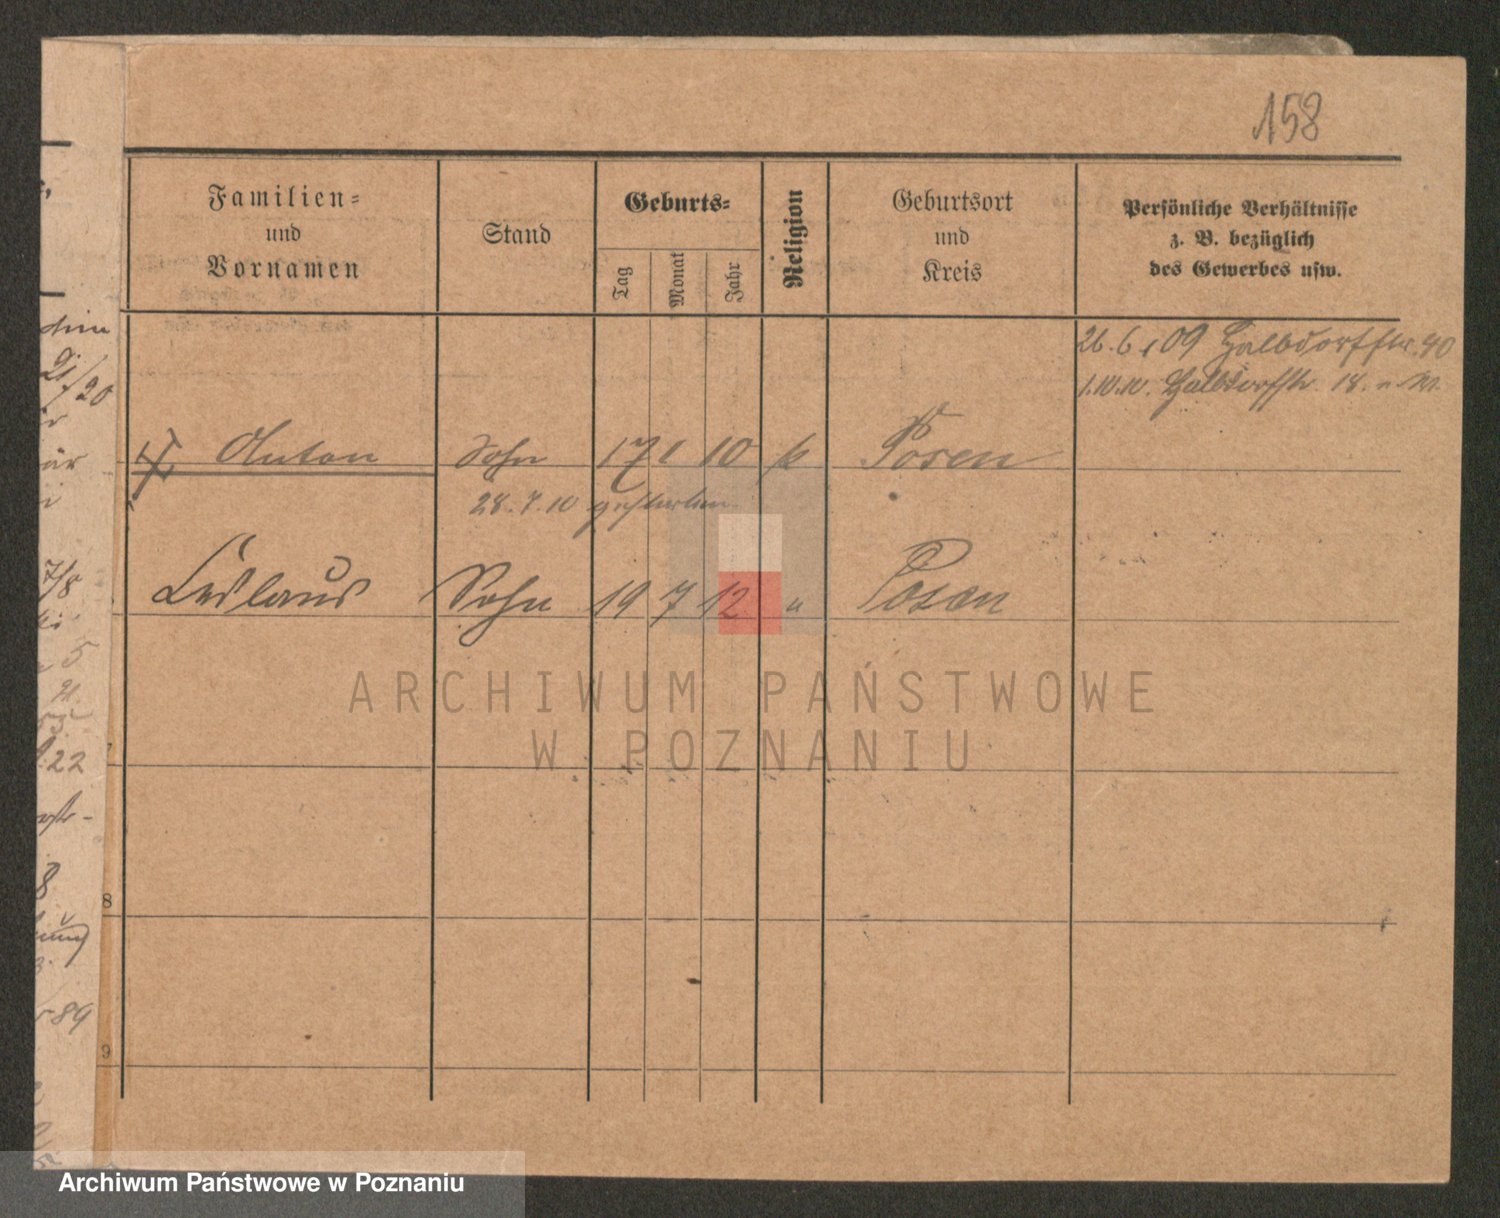 158
Familien=
und
Vornamen
Stand
Geburts=
Tag
Monat
Jahr
Religion
Geburtsort
und
Kreis
Persönliche Verhältnisse
z. B. bezüglich
des Gewerbes usw.
26.6.09 Halbdorfstr. 40
1.10.10. Halbdorfstr. 18.
Anton Sohn 17 1 10 k Posen
28.7.10 gestorben
Leslaus Sohn 19 7 12 " Posen
8
9
21/20
7/8
5
22
8
89
ARCHIWUM PAŃSTWOWE
W POZNANIU
Archiwum Państwowe w Poznaniu